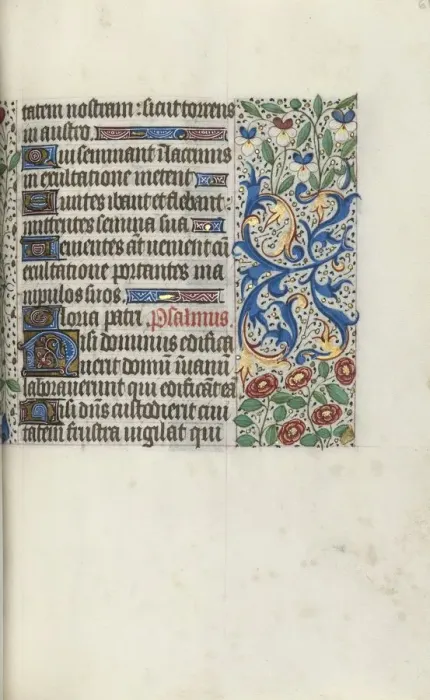 tatem nostram : sicut torrens
in austro.
Qui seminant in lacrimis
in exultatione metent
Euntes ibant et flebant :
mittentes semina sua
Venientes aūt uenient cū
exultatione portantes ma
nipulos suos.
Gloria patri Psalmus.
Nisi dominus edifica
uerit domū īuanū
laborauerunt qui edificāt eā
Nisi dn̄s custodierit ciui
tatem frustra uigilat qui